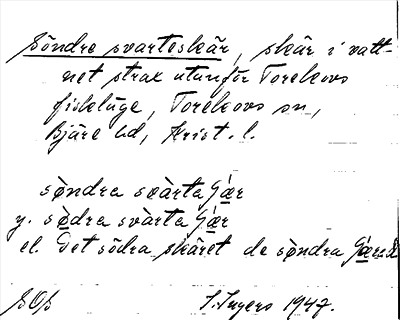 Söndre svarteskär, skär i vatt-
net strax utanför Torekovs
fiskläge, Torekovs sn,
Bjäre hd, Krist. l.
sòndra svàrta
y. sòdra svàrta
el. Det södra skäret de sòndra
I. Ingers 1947.